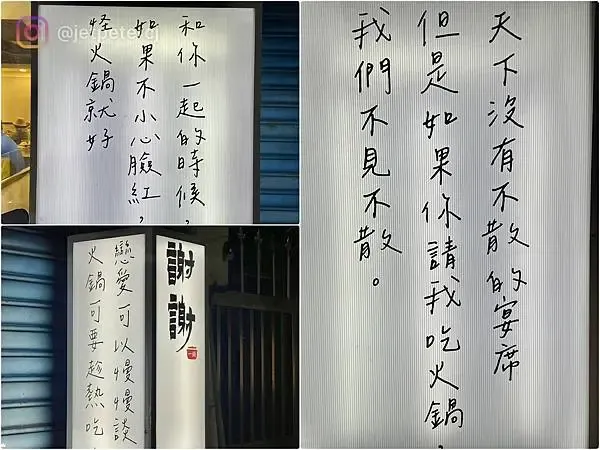 @jetpete.cj
和你一起的時候，
如果不小心臉紅，
怪火鍋就好
戀愛可以慢慢談
火鍋可要趁熱吃，
謝謝
天下沒有不散的宴席
但是如果你請我吃火鍋，
我們不見不散。